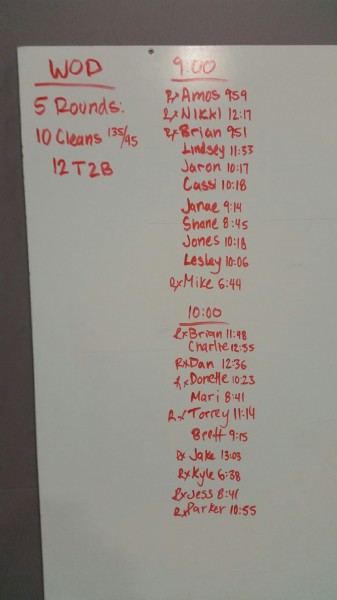 WOD
5 Rounds:
10 Cleans 135/95
12 T2B
9:00
Rx Amos 9:59
Rx Nikki 12:17
Rx Brian 9:51
Lindsey 11:53
Jaron 10:17
Cassi 10:18
Janae 9:14
Shane 8:45
Jones 10:18
Lesley 10:06
Rx Mike 6:44
10:00
Rx Brian 11:48
Charlie 12:55
Rx Dan 12:36
Rx Donelle 10:23
Mari 8:41
Rx Torrey 11:14
Brett 9:15
Rx Jake 13:03
Rx Kyle 6:38
Rx Jess 8:41
Rx Parker 10:55